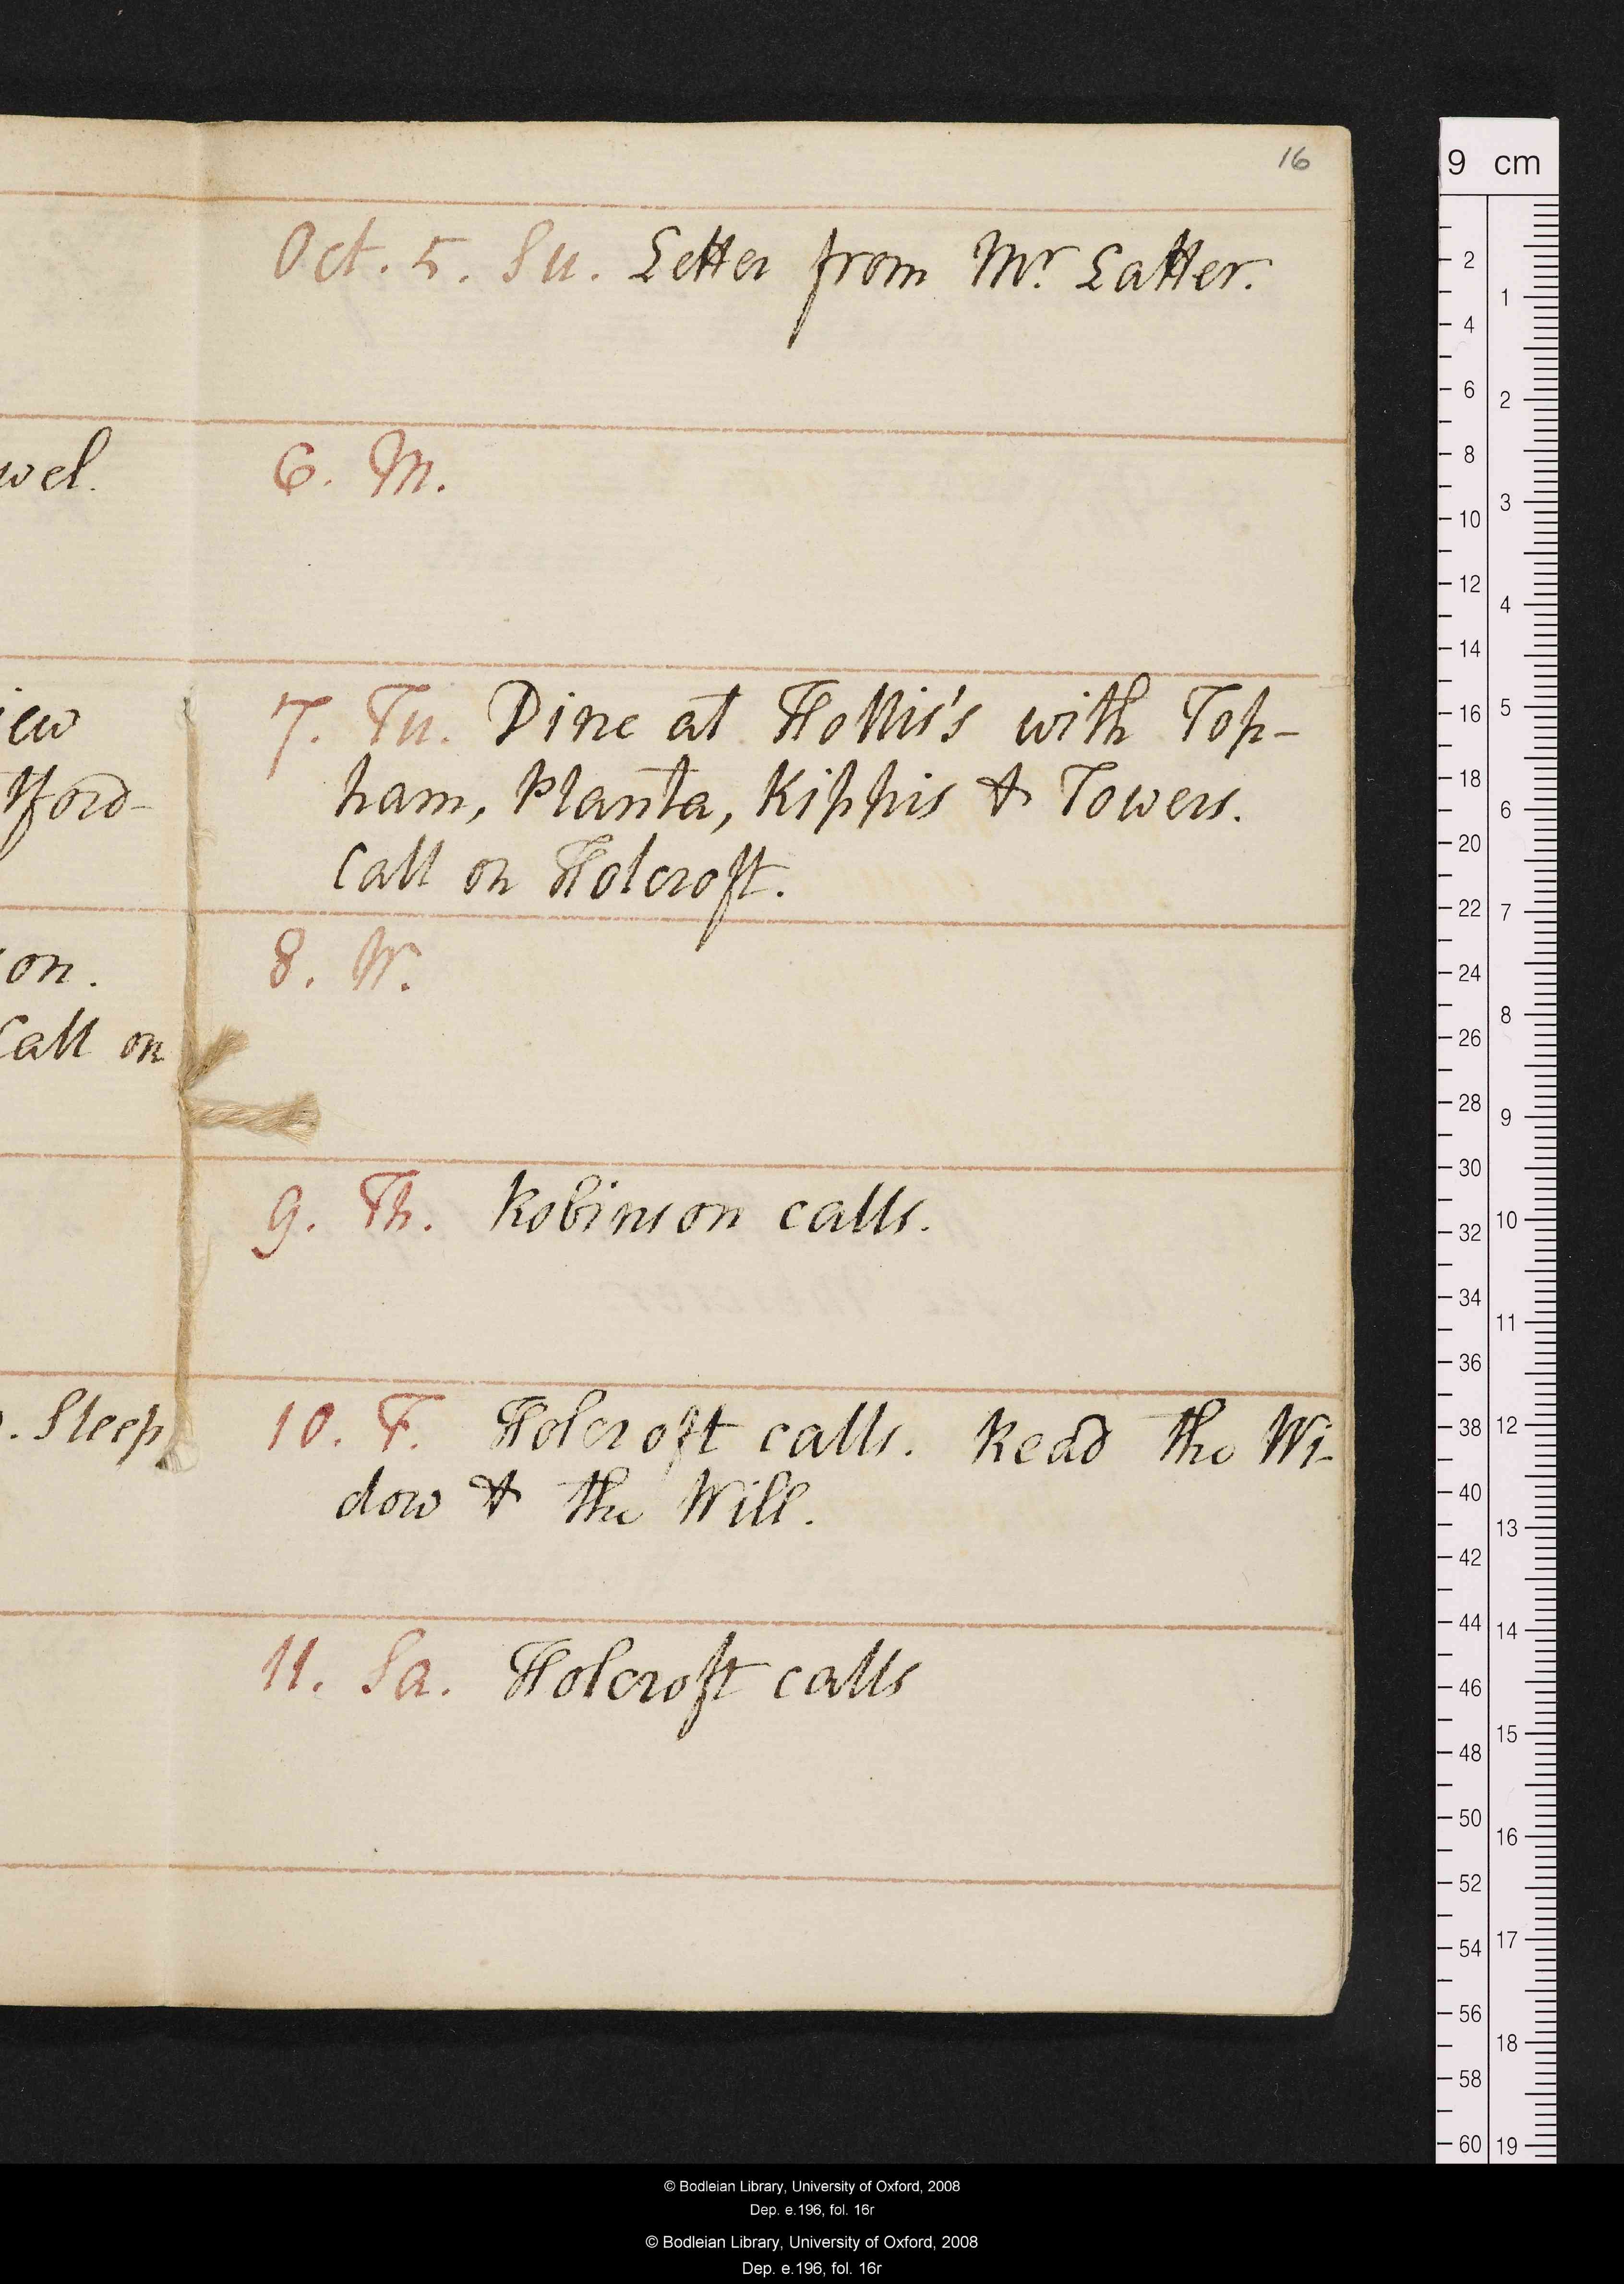 16
Oct. 5. Su. Letter from Mr. Latter.
wel.
6. M.
iew
7. Tu. Dine at Hollis's with Top-
tford-
ham, Planta, Kippis & Towers.
Call on Holcroft.
on.
8. W.
Call on
9. Th. Robinson calls.
. Sleep
10. F. Holcroft calls. Read the Wi-
dow & the Will.
11. Sa. Holcroft calls
9 cm
2
1
4
6
2
8
3
10
12
4
14
16
5
18
6
20
22
7
24
8
26
28
9
30
32
10
34
11
36
38
12
40
13
42
44
14
46
15
48
50
16
52
54
17
56
18
58
60
19
© Bodleian Library, University of Oxford, 2008
Dep. e.196, fol. 16r
© Bodleian Library, University of Oxford, 2008
Dep. e.196, fol. 16r